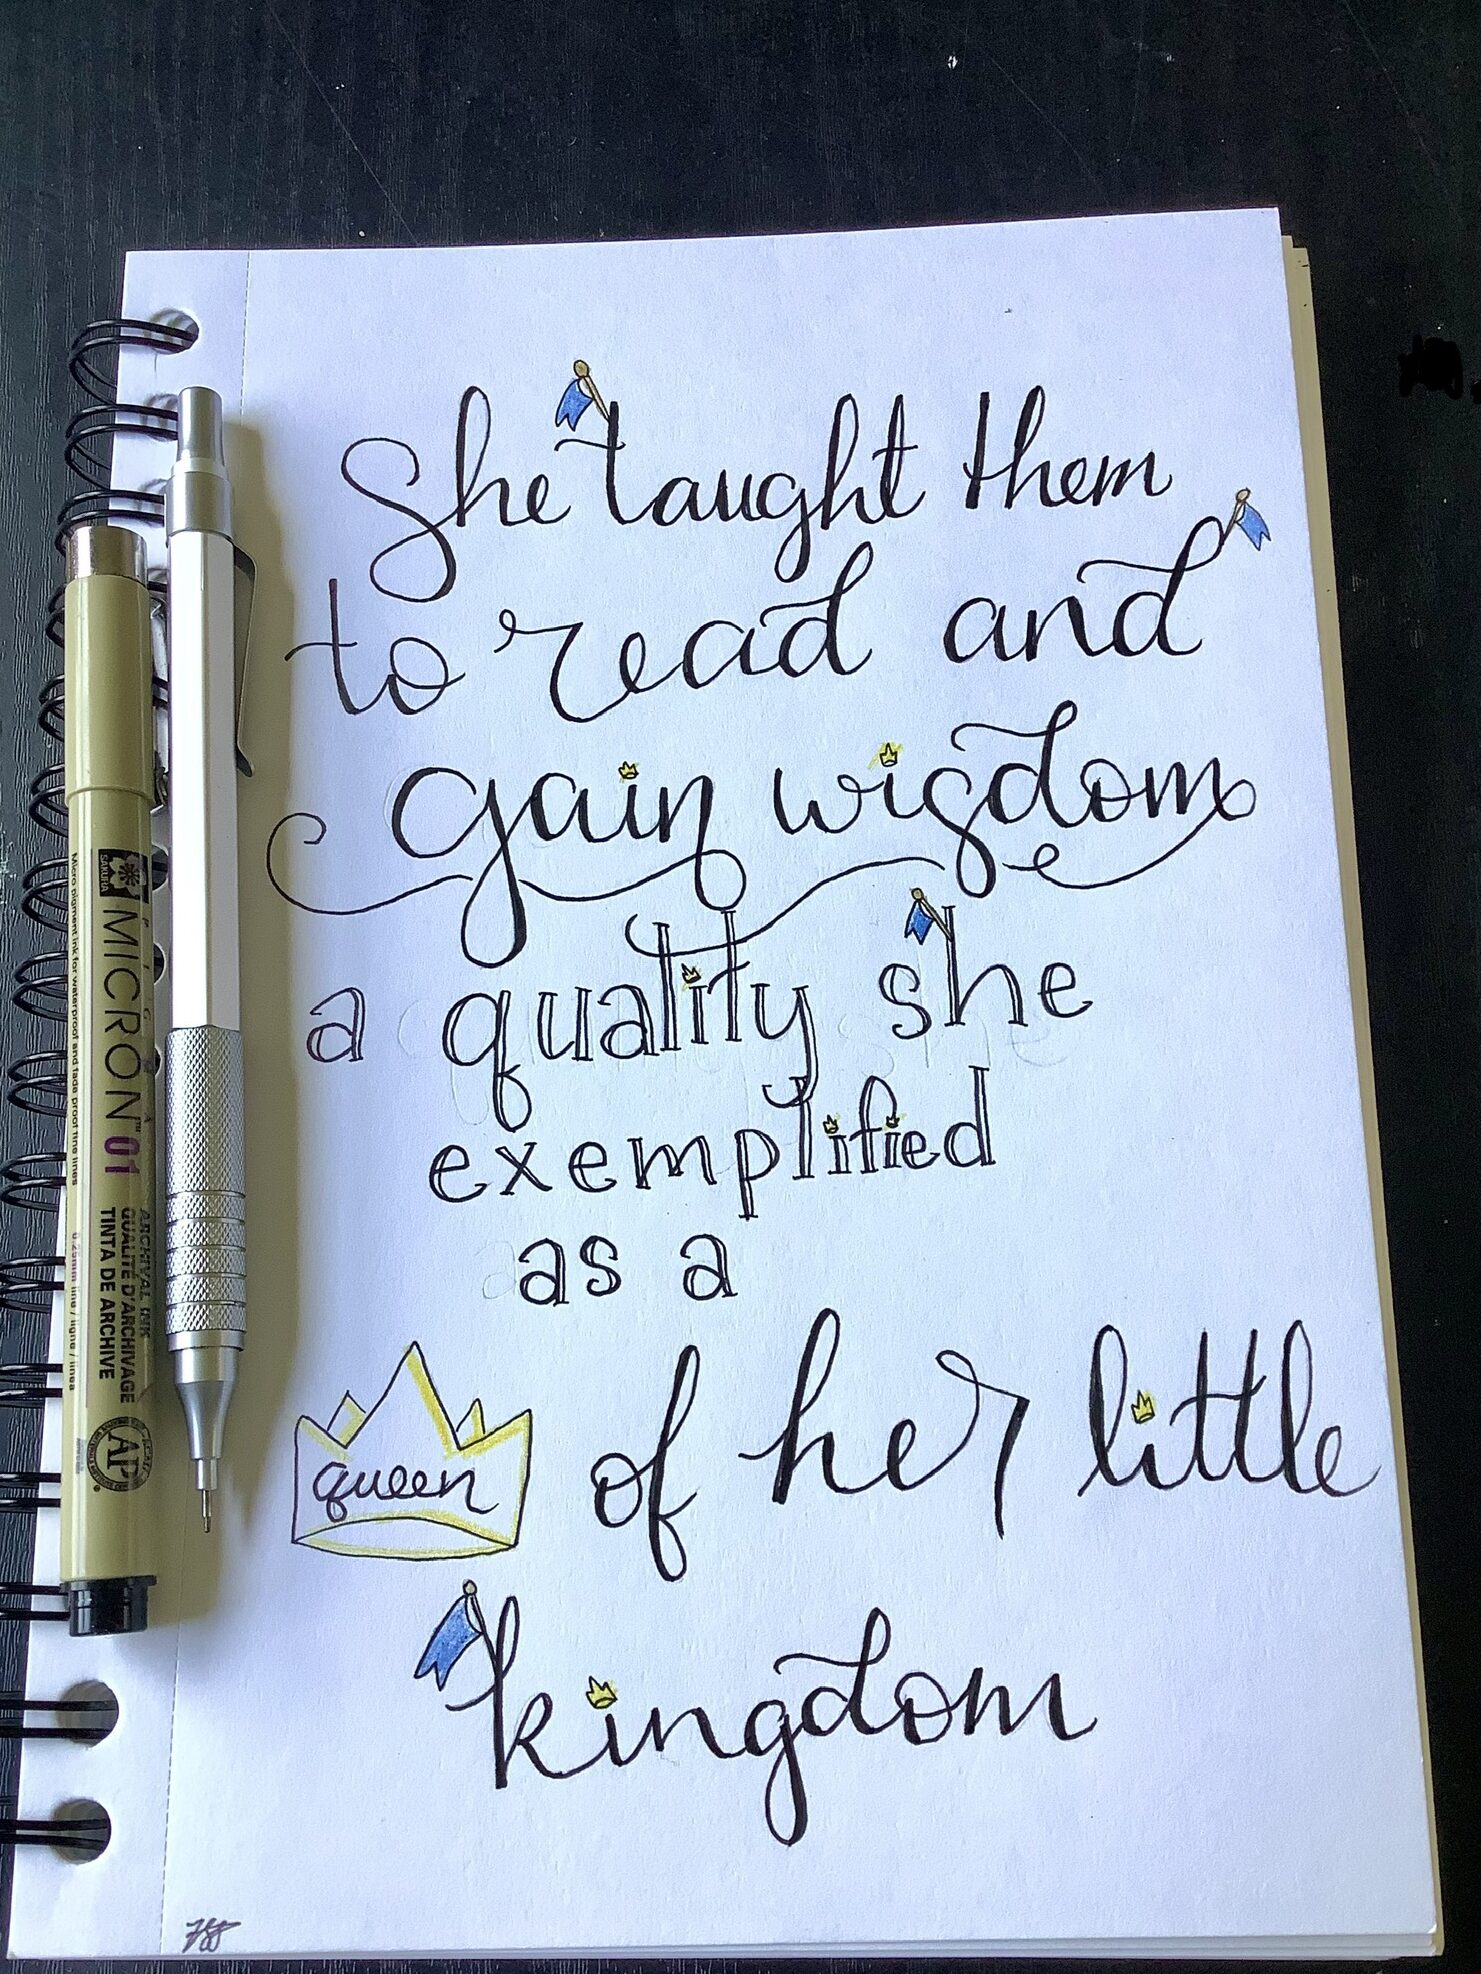 She taught them
to read and
gain wisdom
a quality she
exemplified
as a
queen of her little
kingdom
SAKURA
PIGMA
MICRON™ 01
Micro pigment ink for waterproof and fade proof fine lines
0.25mm line / ligne / línea
ARCHIVAL INK
QUALITÉ D'ARCHIVAGE
TINTA DE ARCHIVE
AP